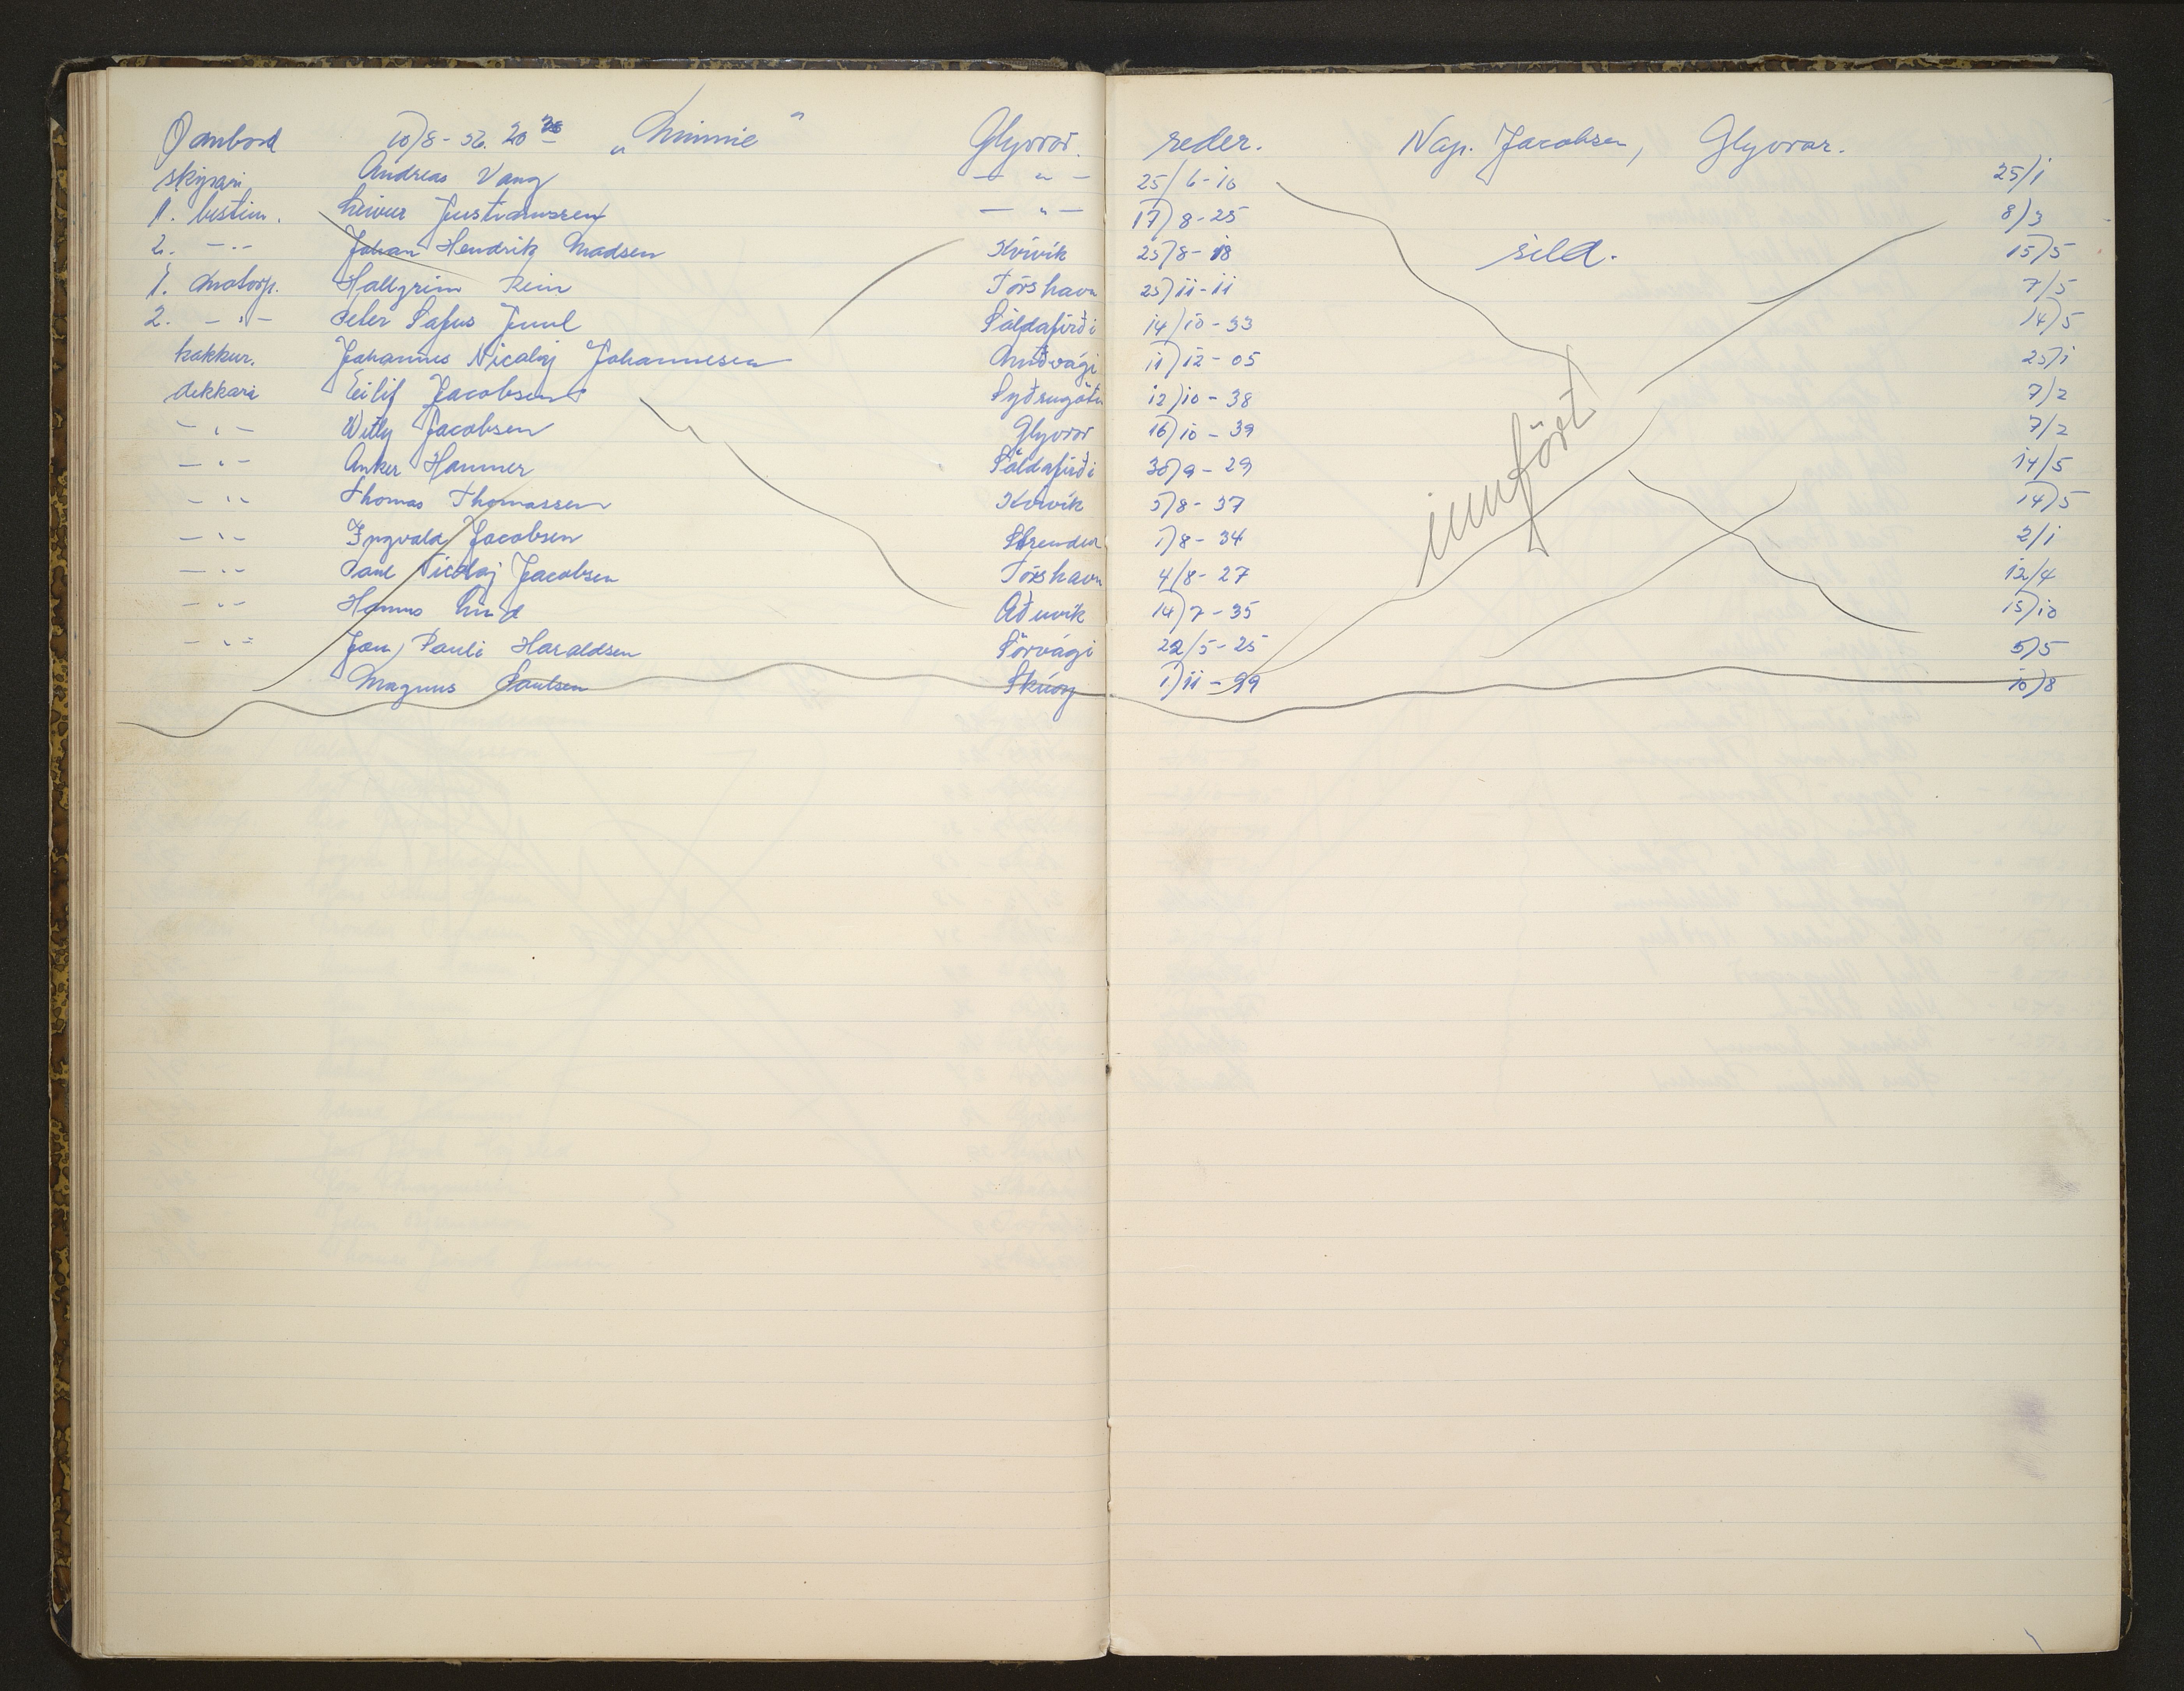 10/8-56. 20 "Minnie" Glyvrar. reder. Nap. Jacobsen, Glyvrar.
skipari Andreas Vang — " — 25/6-10 25/1
1. bestim. Justinussen — " — 17/8-25 8/3
2. — " — Johan Hendrik Madsen Kvívík 25/8-18 sild. 15/5
1. motorp. Hallgrim Rein Tórshavn 25/11-11 7/5
2. — " — Peter Juul Saldafirði 14/10-33 14/5
kokkur. Johannes Nicolaj Johannesen Miðvági 11/12-05 25/1
dekkari Eilif Jacobsen Syðrugøtu 12/10-38 7/2
— " — Willy Jacobsen Glyvrar 16/10-39 7/2
— " — Anker Hammer Saldafirði 30/9-29 14/5
— " — Thomas Thomassen Kvívík 5/8-37 14/5
— " — Ingvald Jacobsen Strendur 1/8-34 2/1
— " — Paul Nicolaj Jacobsen Tórshavn 4/8-27 12/4
— " — Hannus Lind Æðuvík 14/7-35 15/10
— " — Jon Pauli Haraldsen Sörvági 22/5-25 5/5
Magnus Paulsen Skúoy 1/11-99 10/8
innfört